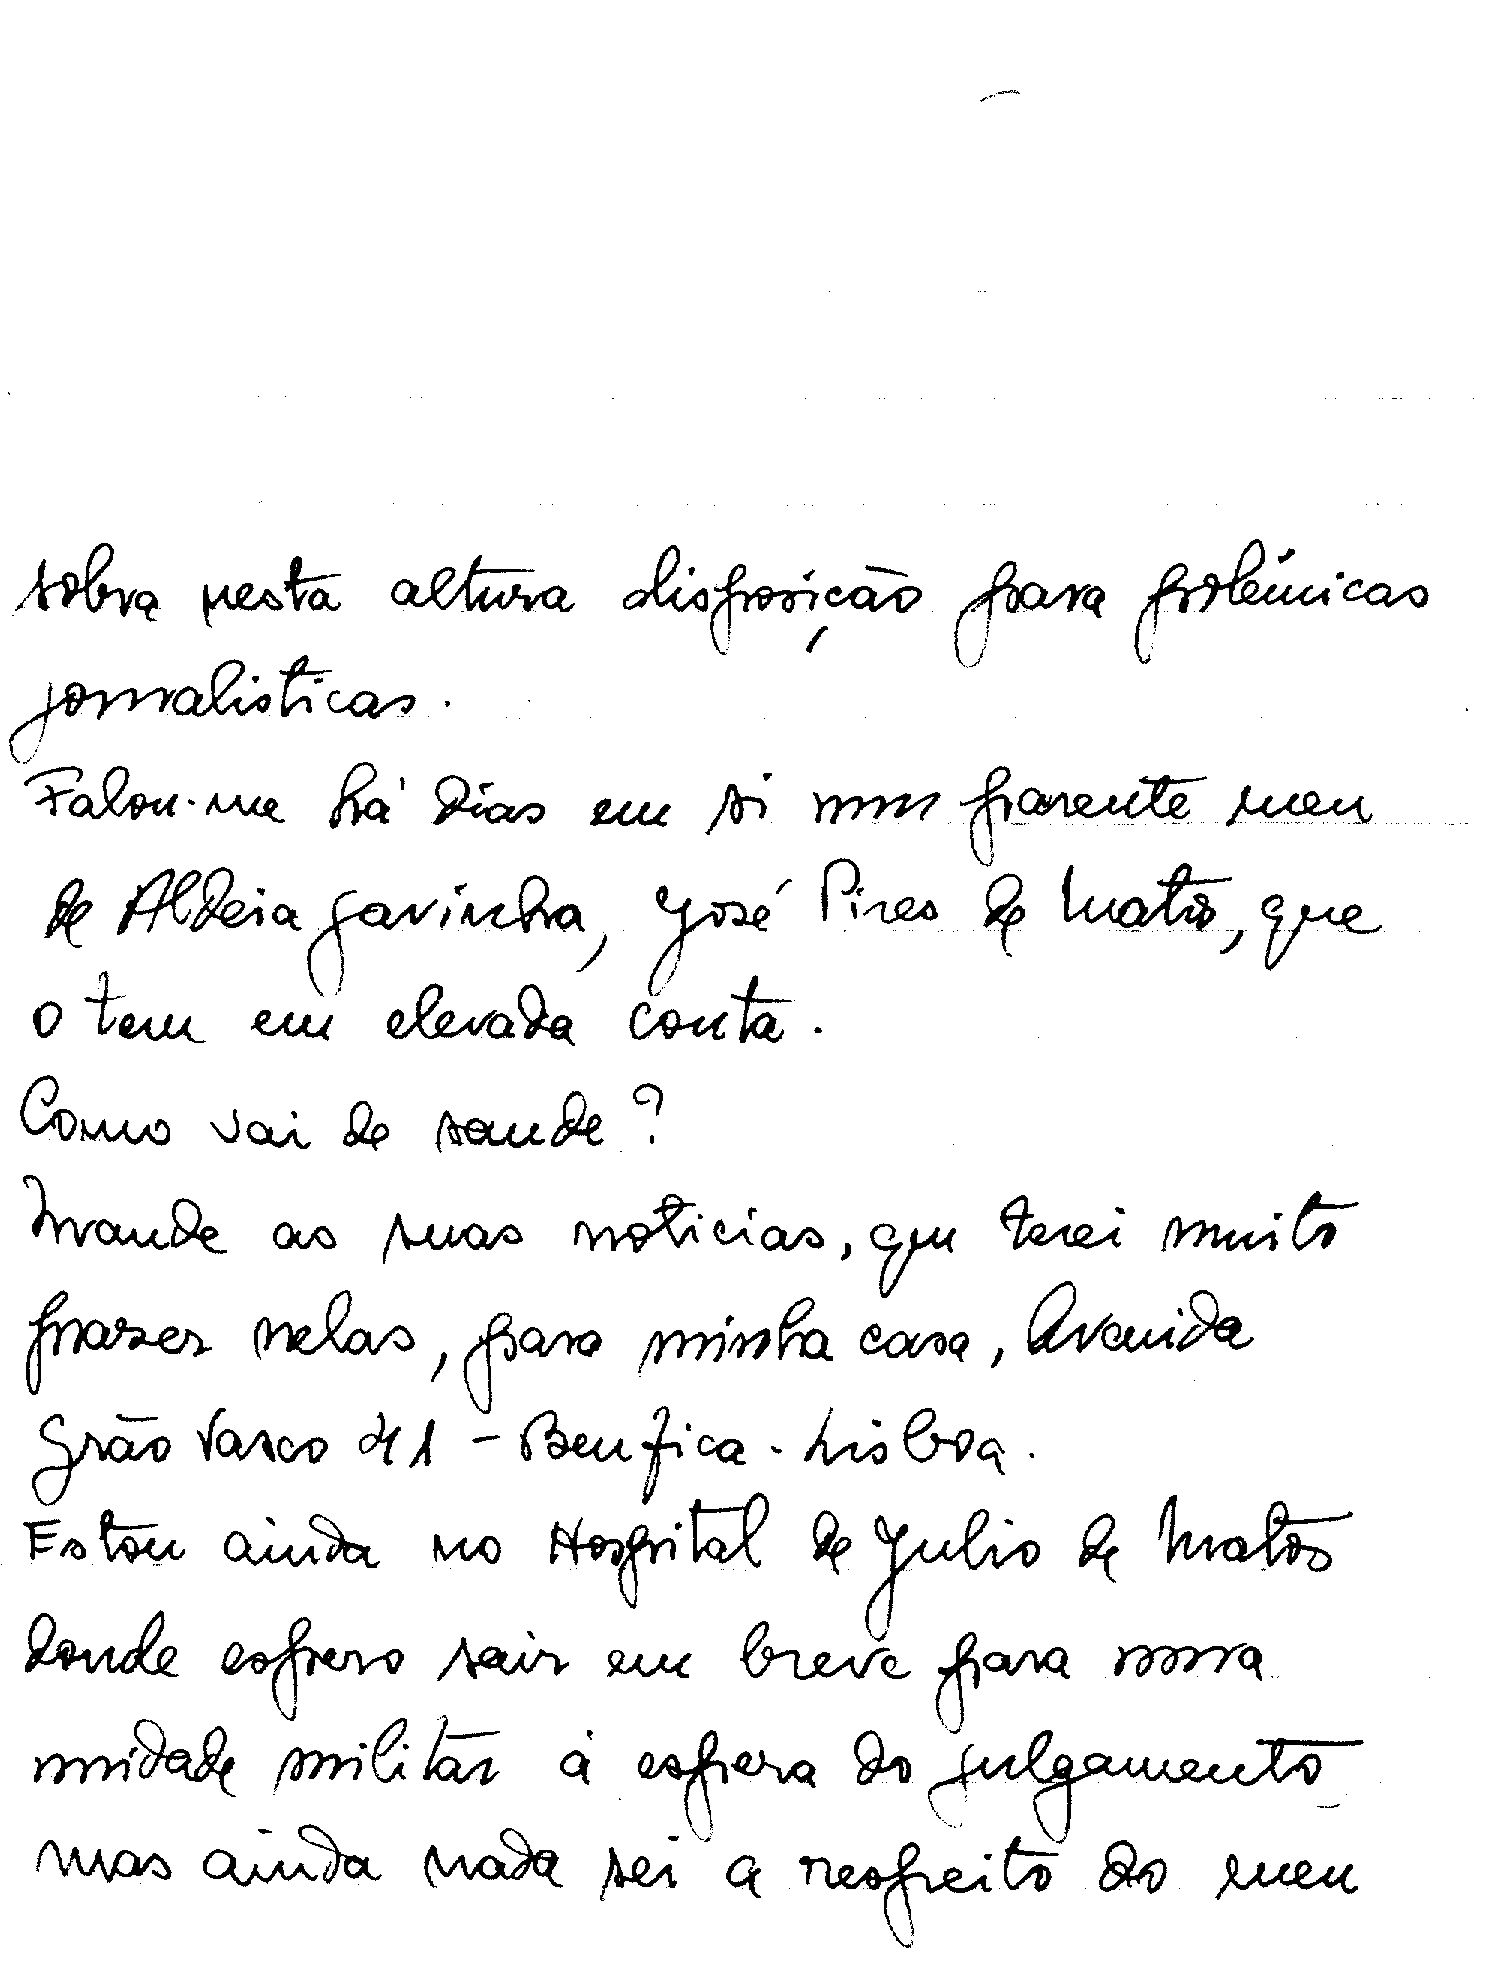 sobra nesta altura disposição para polémicas
jornalisticas.
Falou-me há dias em si num parente meu
de Aldeia Gavinha, José Pires de Matos, que
o tem em elevada conta.
Como vai de saude?
Mande as suas noticias, que terei muito
prazer nelas, para minha casa, Avenida
Grão Vasco 41 - Benfica - Lisboa.
Estou ainda no Hospital de Julio de Matos
donde espero sair em breve para numa
unidade militar á espera do julgamento
mas ainda nada sei a respeito do meu